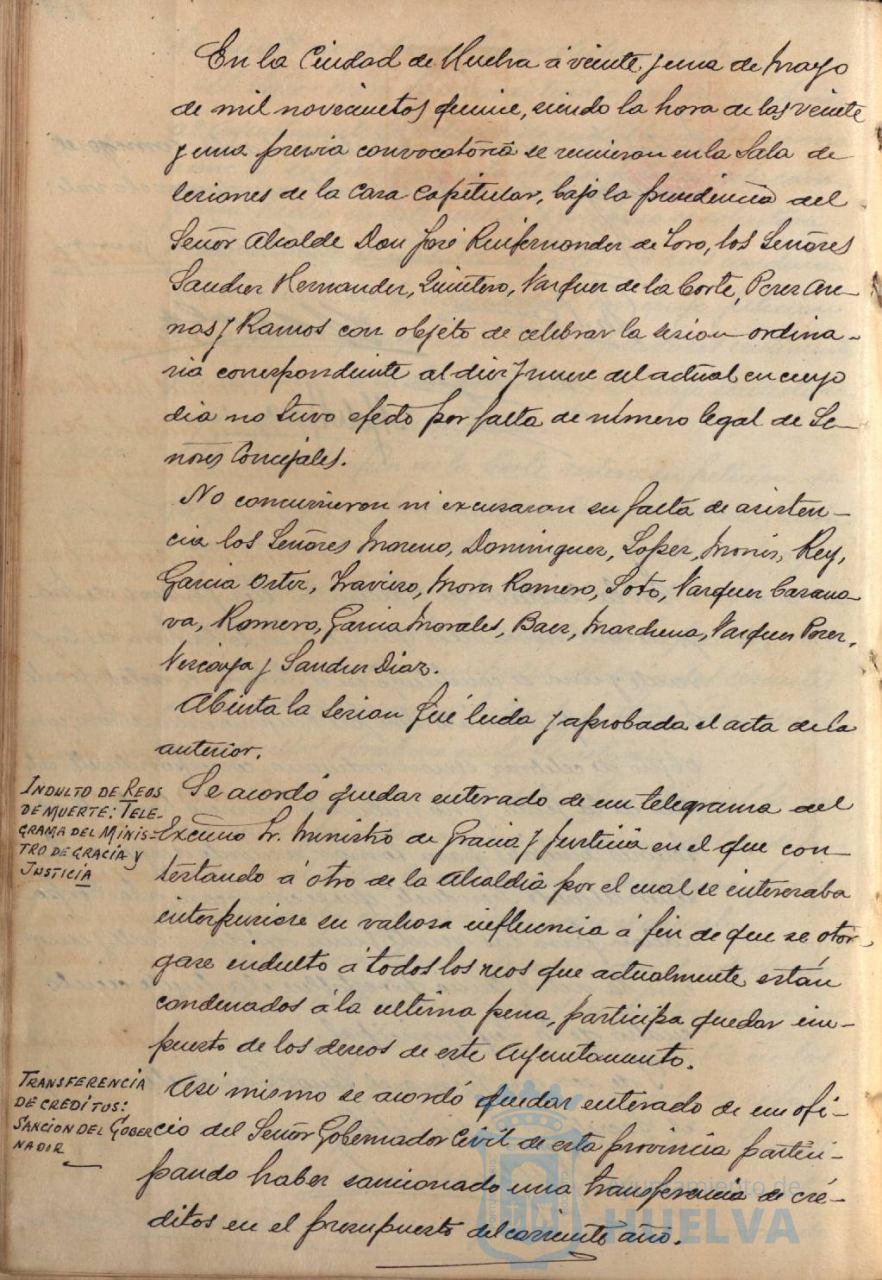 En la Ciudad de Huelva á veinte y una de Mayo
de mil novecientos quince, siendo la hora de las veinte
y una previa convocatoria se reunieron en la Sala de
sesiones de la Casa Capitular, bajo la presidencia del
Señor Alcalde Don José Ruifernandez de Toro, los Señores
Sanchez Hernandez, Quintero, Vazquez de la Corte, Perez Are-
nas y Ramos con objeto de celebrar la sesion ordina-
ria correspondiente al diez y nueve del actual en cuyo
dia no tuvo efecto por falta de número legal de Se-
ñores Concejales.
No concurrieron ni excusaron su falta de asisten-
cia los Señores Moreno, Dominguez, Lopez, Monis, Rey,
Garcia Ortiz, Travieso, Mora Romero, Soto, Vazquez Casana-
va, Romero, Garcia Morales, Baez, Marchena, Vazquez Perez,
Vizcaya y Sanchez Diaz.
Abierta la sesion fué leida y aprobada el acta de la
anterior.
INDULTO DE REOS
DE MUERTE: TELE-
GRAMA DEL MINIS-
TRO DE GRACIA Y
JUSTICIA
Se acordó quedar enterado de un telegrama del
Excmo Sr. Ministro de Gracia y Justicia en el que con-
testando á otro de la Alcaldia por el cual se interesaba
interpusiese su valiosa influencia á fin de que se otor-
gase indulto á todos los reos que actualmente están
condenados á la ultima pena, participa quedar im-
puesto de los deseos de este Ayuntamiento.
TRANSFERENCIA
DE CREDITOS:
SANCION DEL GOBER
NADOR
Asi mismo se acordó quedar enterado de un ofi-
cio del Señor Gobernador Civil de esta provincia partici-
pando haber sancionado una transferencia de cré-
ditos en el presupuesto del corriente año.
Ayuntamiento de
HUELVA